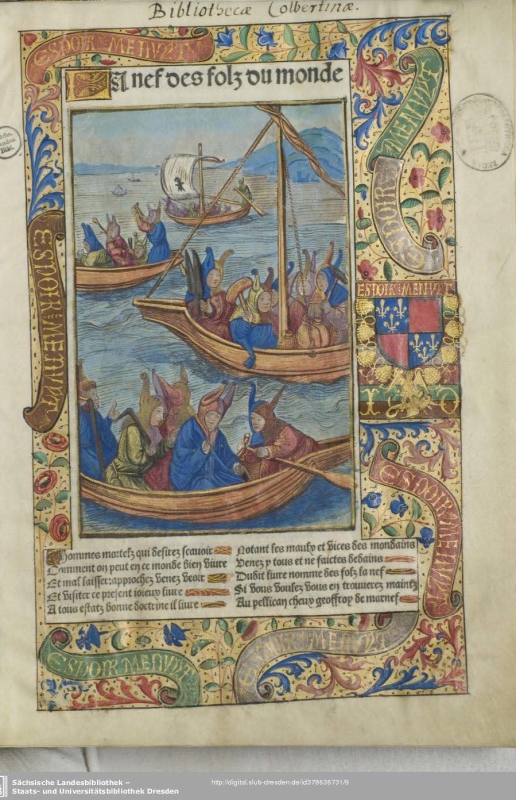 Bibliothecæ Colbertinæ.
ESPOIR MENVYT
La nef des folz du monde
ESPOIR MENVYT
ESPOIR MENVYT
ESPOIR MENVYT
ESPOIR MENVYT
Hommes mortelz qui desirez scauoir
Comment on peut en ce monde bien viure
Et mal laisser approchez venez veoir
Et visiter ce present ioieux liure
A tous estatz bonne doctrine il liure
Notant les maulx et vices des mondains
Venez y tous et ne faictes desdains
Dudit liure nomme des folz la nef
Si vous voulez vous en trouuerez maintz
Au pellican cheux geoffroy de marnef
ESPOIR MENVYT
ESPOIR MENVYT
Sächsische Landesbibliothek –
Staats- und Universitätsbibliothek Dresden
http://digital.slub-dresden.de/id378636731/9